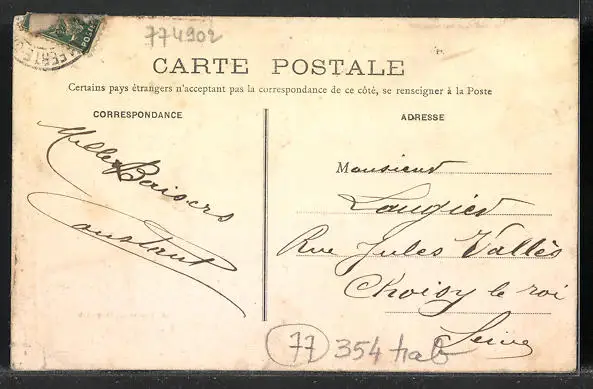 774902
CARTE POSTALE
Certains pays étrangers n'acceptant pas la correspondance de ce côté, se renseigner à la Poste
CORRESPONDANCE
Mille Baisers
Constant
ADRESSE
Monsieur
Laugier
Rue Jules Vallès
Choisy le roi
Seine
77 354 hab